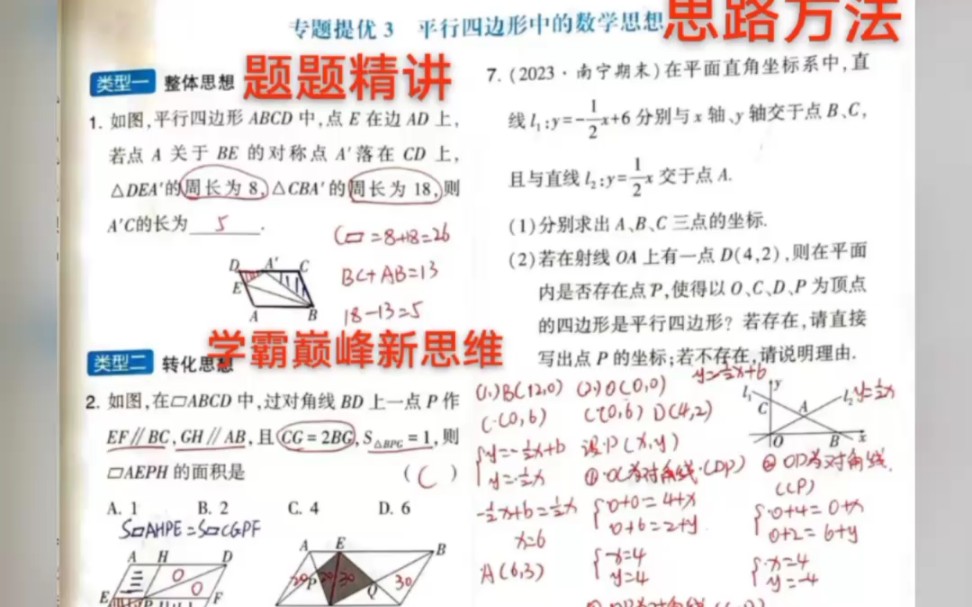 专题提优3 平行四边形中的数学思想
思路方法
类型一 整体思想
题题精讲
1. 如图,平行四边形 ABCD 中,点 E 在边 AD 上,
若点 A 关于 BE 的对称点 A′落在 CD 上,
△DEA′的周长为 8,△CBA′的周长为 18,则
A′C的长为 5 .
C▱=8+18=26
BC+AB=13
18-13=5
D A′ C
E
A B
学霸巅峰新思维
类型二 转化思想
2. 如图,在▱ABCD 中,过对角线 BD 上一点 P 作
EF∥BC,GH∥AB,且 CG=2BG,S△BPG=1,则
▱AEPH 的面积是 ( C )
A. 1 B. 2 C. 4 D. 6
S▱AHPE=S▱CGPF
A H D
E P F
A E B
P Q 30
7. (2023·南宁期末)在平面直角坐标系中,直
线 l₁:y=-1/2x+6 分别与 x 轴、y 轴交于点 B、C,
且与直线 l₂:y=1/2x 交于点 A.
(1)分别求出 A、B、C 三点的坐标.
(2)若在射线 OA 上有一点 D(4,2),则在平面
内是否存在点 P,使得以 O、C、D、P 为顶点
的四边形是平行四边形？若存在,请直接
写出点 P 的坐标;若不存在,请说明理由.
y=-1/2x+6
l₁ y l₂ y=1/2x
C A
O B x
(1) B(12,0) (2) O(0,0)
C(0,6) C(0,6) D(4,2)
y=-1/2x+6 设P(x,y)
y=1/2x ①OC为对角线(DP) ②OD为对角线
(CP)
-1/2x+6=1/2x 0+0=4+x 0+4=0+x
0+6=2+y 0+2=6+y
x=6 x=4 x=4
A(6,3) y=4 y=-4